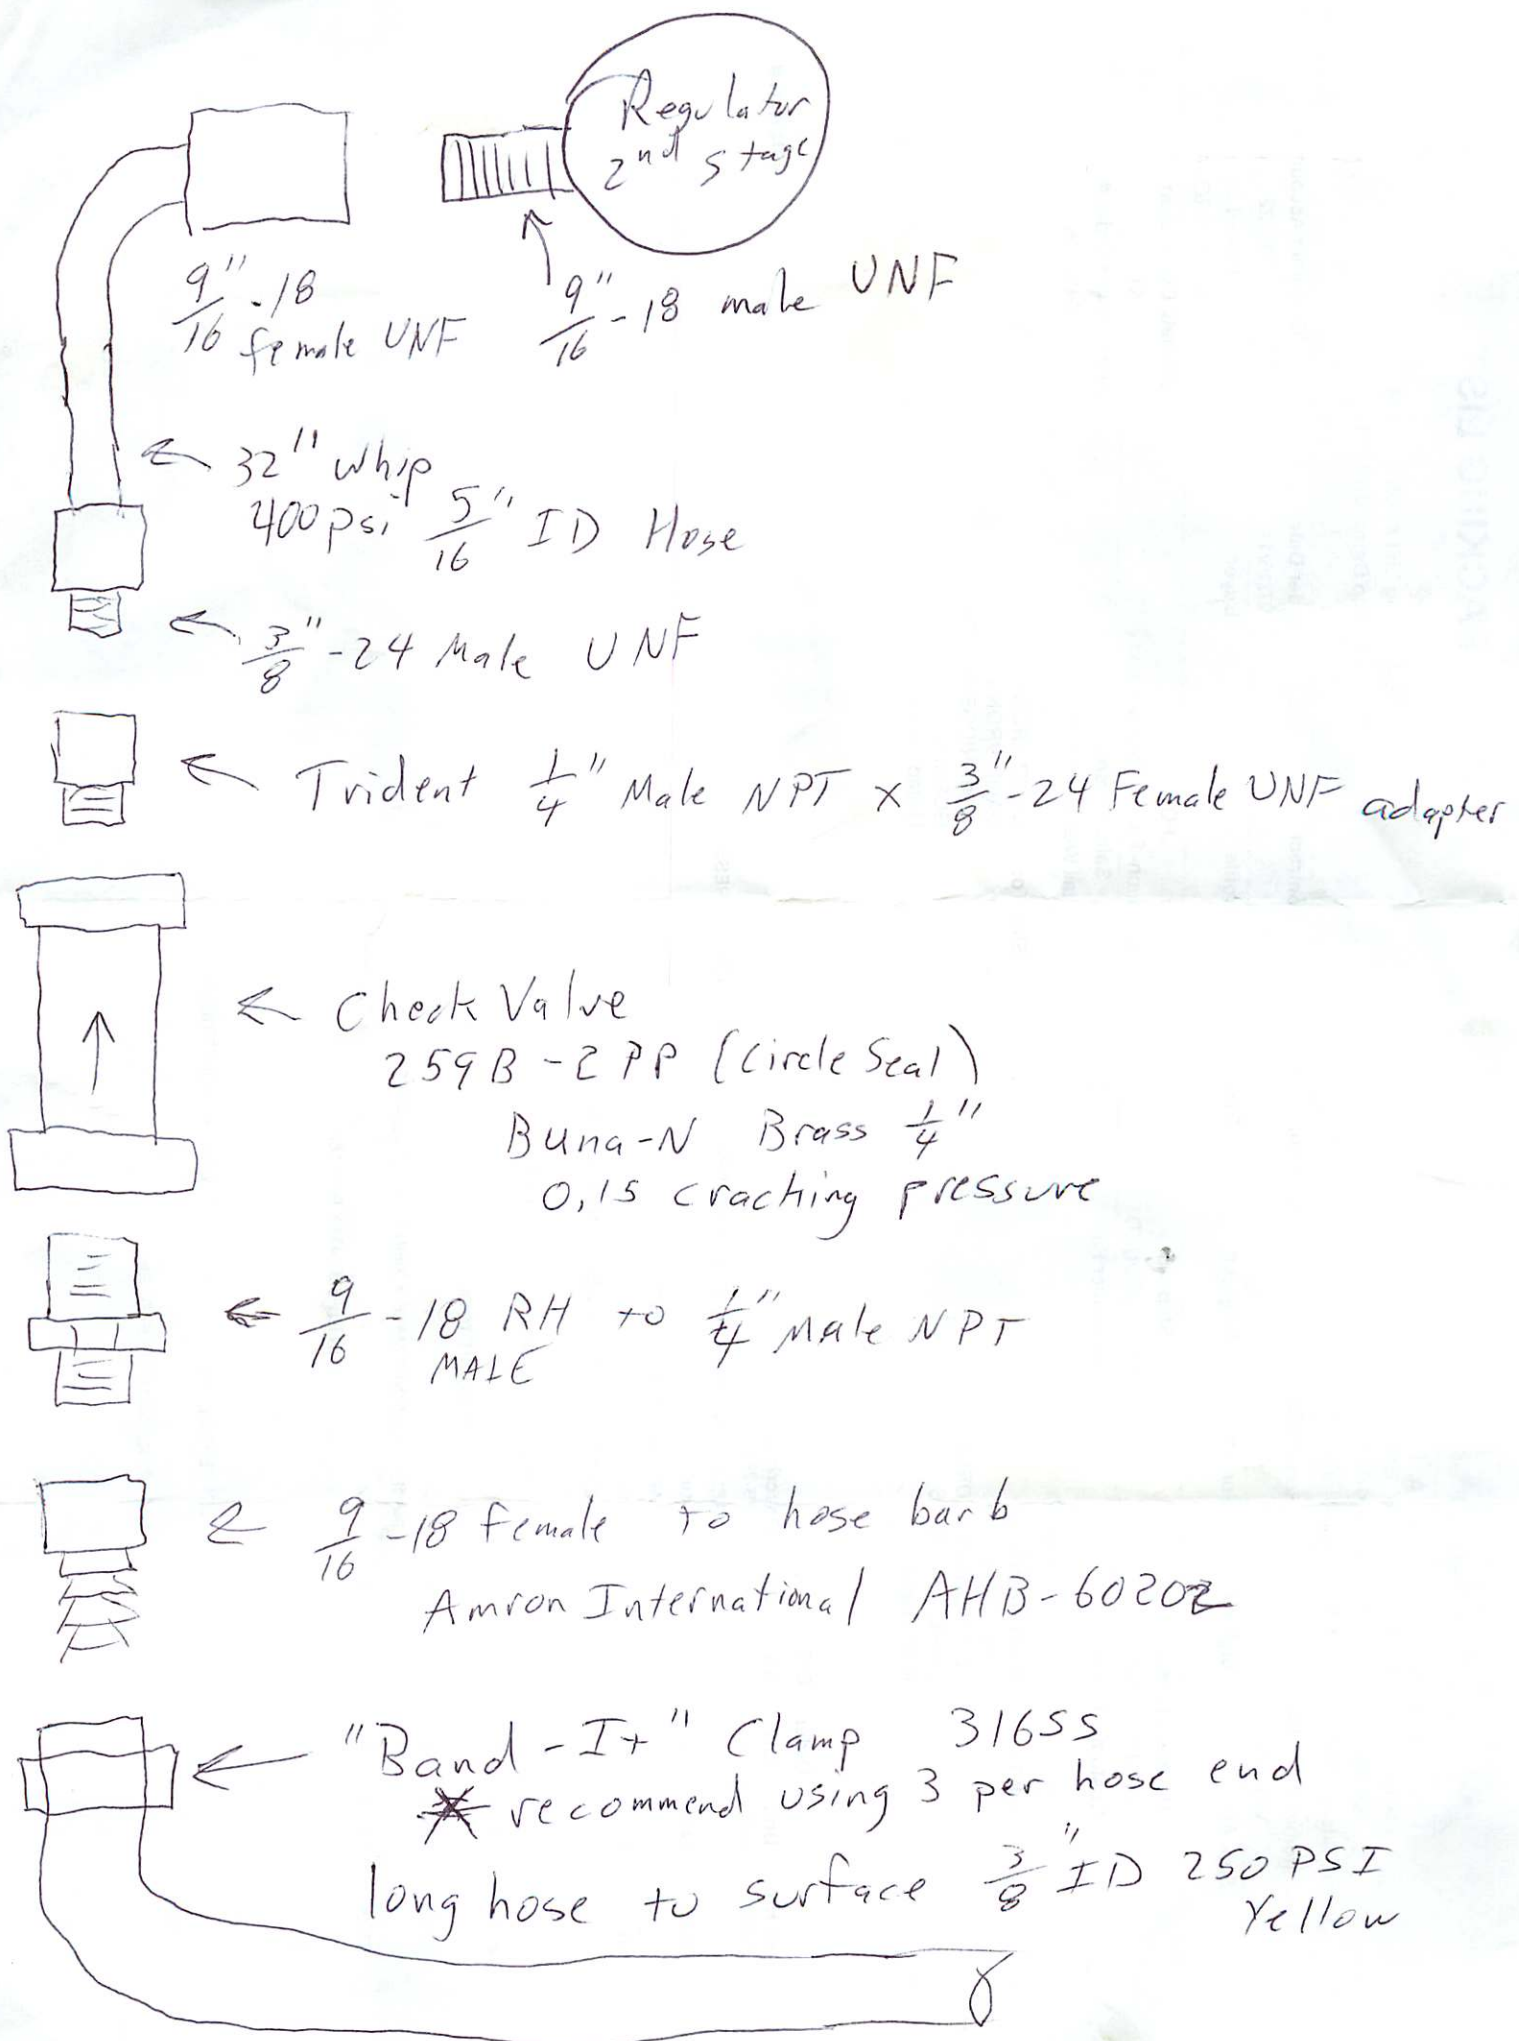 Regulator
2nd Stage
9/16"-18
female UNF
9/16"-18 male UNF
32" whip
400 psi 5/16" ID Hose
3/8"-24 Male UNF
Trident 1/4" Male NPT x 3/8"-24 Female UNF adapter
Check Valve
259B-2PP (Circle Seal)
Buna-N Brass 1/4"
0.15 cracking pressure
9/16-18 RH to 1/4" Male NPT
MALE
9/16-18 Female to hose barb
Amron International AHB-6020
"Band-It" Clamp 316SS
* recommend using 3 per hose end
long hose to surface 3/8" ID 250 PSI
Yellow